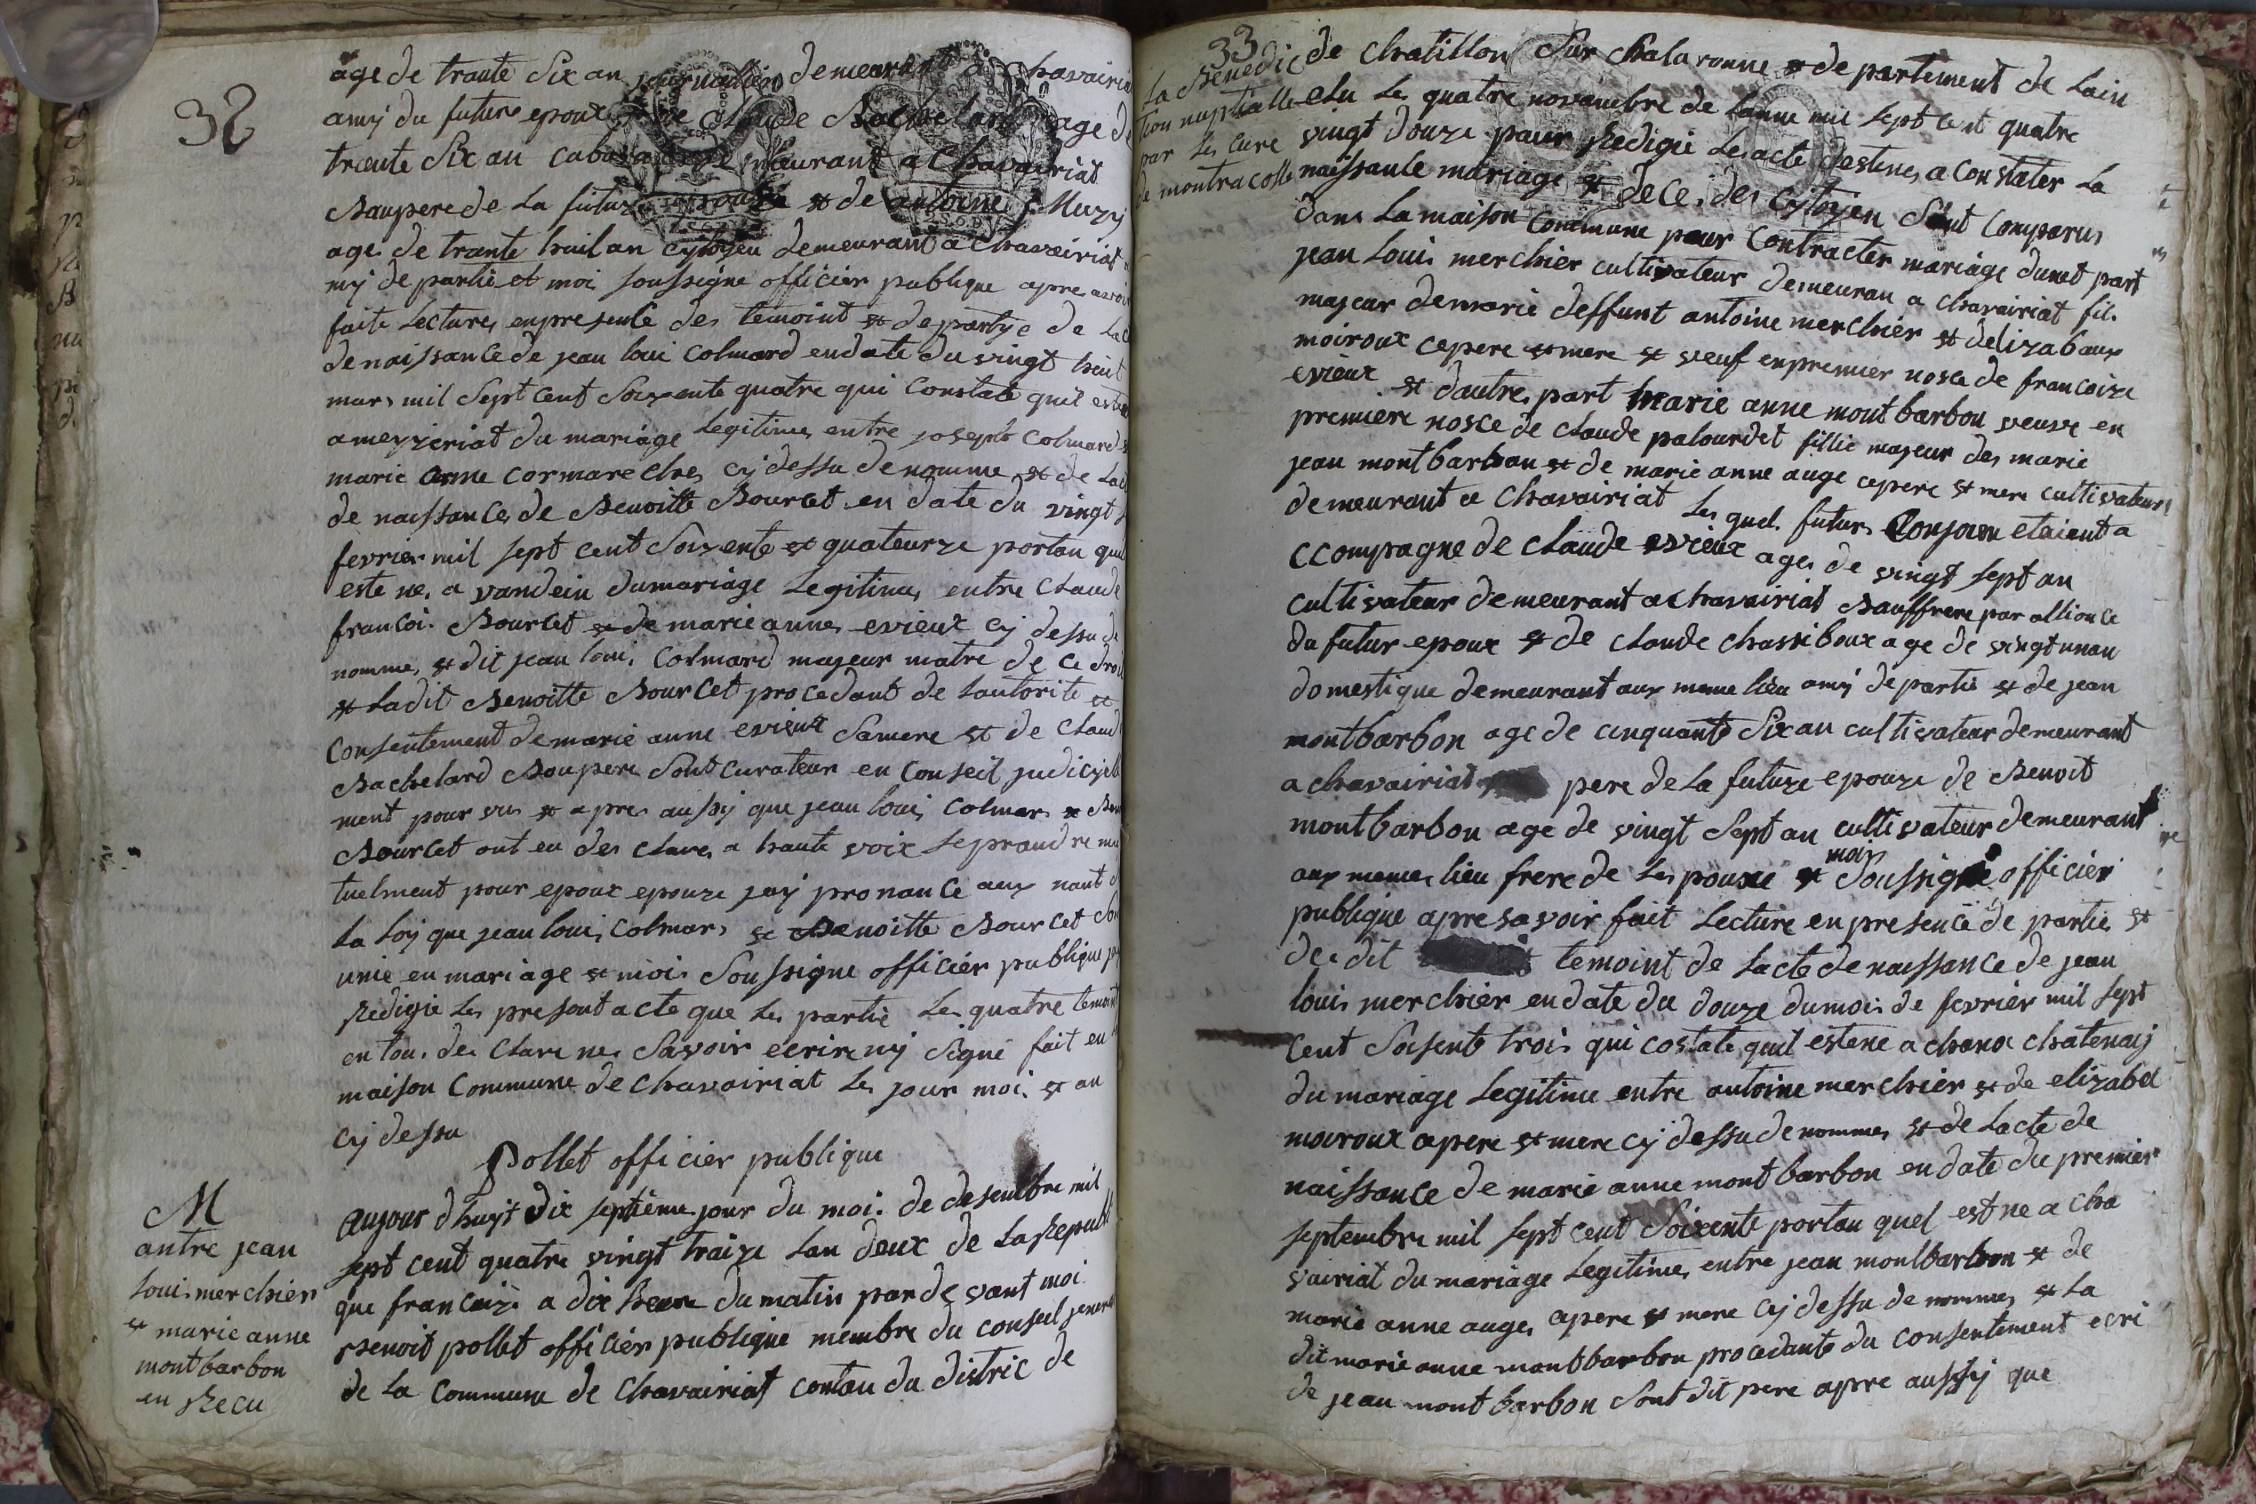 32
age de trante Six an journalier demeurant a Chavairia
amÿ du future epoux de Claude Bachelard age de
trante Six an cabara demeurant a Chavairiat
Baupere de La future epouse et de antoine Muzÿ
age de trante huit an cytoÿen demeurant a Chavairiat a
mÿ de partie et moi soussigne officier publique apre avoir
faite Lecture, en presence des temoint et de partye de La
de naissance de jean loui Colmard en date du vingt huit
mars mil Sept cent Soixente quatre qui Constate quil este
a mezzeriat du mariage Legitime, entre joseph Colmard
marie anne cormareche, cÿ dessu denomme, et de Lac
de naissance, de Benoitte Bourcet en date du vingt
fevrier mil sept cent Soixente et quateurze portan quel
este ne, a vandein du mariage Legitime, entre Claude
francoi. Bourcet et de marie anne, evieux cÿ dessu de
nomme, et dit jean loui, Colmard majeur matre de Ce droi
et Ladit Benoitte Bourcet procedant de Lautorite et
Consentement de marie anne evieux Samere et de Claud
Bachelard Boupere Sont curateur en Conseil judicÿel
ment pour vu et apres aussÿ que jean loui, Colmar et Ben
Bourcet ont eu des clare, a haute voix Seprandre mu
tuelment pour epoux epouze jaÿ pronance aux nant d
La Loÿ que jean loui, Colmar, et Benoitte Bourcet Son
unie en mariage et moi Soussigne officier publique jaÿ
Redigie Les presont acte que Les partie Les quatre temoint
en tou, des Clare ne, Savoir ecrire nÿ Signé fait en
maison Commune de Chavairiat Les jour moi. et an
cÿ dessu
Pollet officier publique
M
antre jean
Loui, merchier
et marie anne
montbarbon
en Recu
aujour dhuyt dix septieme jour du moi. de desembre mil
sept cent quatre vingt traize Lan deux de La Republi
que francaize a dix heure du matin par de vant moi
Benoit pollet officier publique membre du conseil jeneral
de La Commune de Chavairiat contou du distric de
33
La Benedic
tion nuptialle
par Les cure
de montracolle
de Chatillon Sur Chalaronne et departement de Lain
elu Le, quatre novambre de Lanne mil Sept cent quatre
vingt douze pour Redigie Les acte destine, a Constater La
naissance mariage et dece, des cÿtoÿen Sont Comparus
dans La maison Commune pour Contracter mariage dunet part
jean Loui, merchier cultivateur demeuran a chavairiat fil.
majeur demarie deffunt antoine merchier et delizabaux
moiroux cepere et mere et veuf en premier nosce de francoize
evieux et dautre, part marie anne montbarbon veuve en
premiere nosce de Claude palourdet fillie majeur des marie
jean montbarbon et de marie anne auge cepere et mere cultivateur,
demeurant a Chavairiat Les quel. futur, Conjoin etaient a
ccompagne de Claude evieux age, de vingt sept an
cultivateur demeurant a chavairiat Bauffrere par alliance
du futur epoux et de Claude Chassiboux age de vingt unan
domestique demeurant aux meme lieu amÿ de partie et de jean
montbarbon age de cinquante Six an cultivateur demeurant
a chavairiat pere de La future epouze de Benoit
montbarbon age de vingt Sept an cultivateur demeurant
aux meme, lieu frere de Lespouxe et moi Soussigné officier
publique apre savoir fait Lecture en presence de partie, et
de. dit temoint de Lacte de naissance de jean
loui, merchier en date du douze du moi. de fevrier mil sept
Cent Soisente trois qui costate quil estene a chanox chatenaÿ
du mariage Legitime entre antoine merchier et de elizabel
moiroux apere et mere cÿ dessu denomme, et de Lacte de
naissance de marie anne montbarbon en date du premier
septembre mil sept cent Soixente portan quel est ne a cha
vairiat du mariage Legitime, entre jean montbarbon et de
marie anne auge, apere et mere cÿ dessu denomme, et La
dit marie anne montbarbon procedante du consentement ecri
de jean montbarbon Sont dit pere apre aussÿ que